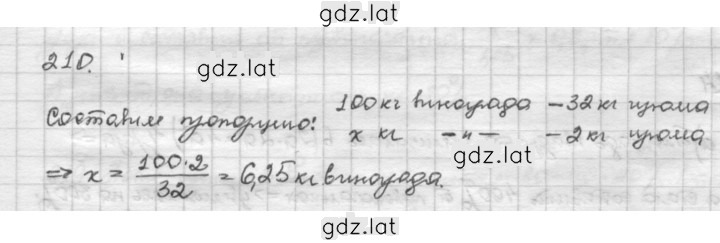 gdz.lat
210.
gdz.lat
Составим пропорцию: 100 кг винограда – 32 кг изюма
х кг –"– – 2 кг изюма
gdz.lat
⇒ x = 100·2/32 = 6,25 кг винограда.
gdz.lat